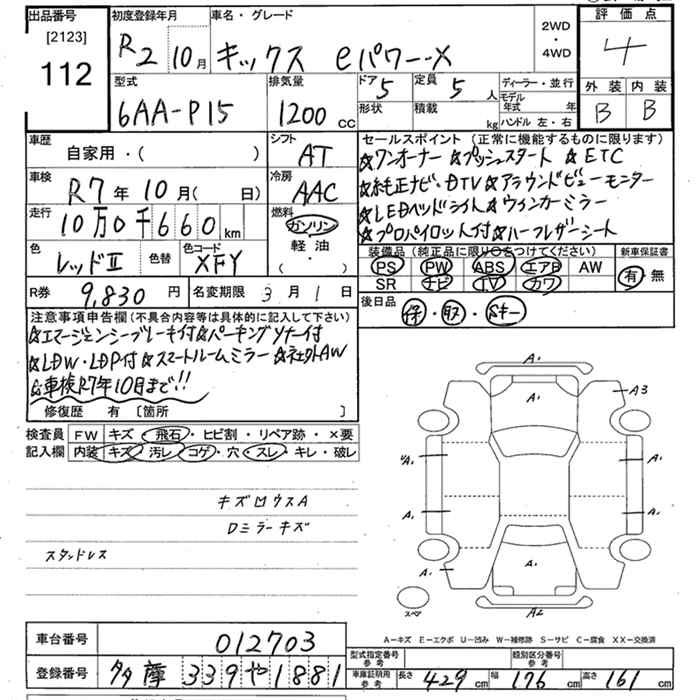 出品番号 初度登録年月 車名・グレード 評価点
[2123]
112
R2 10月 キックス eパワーX 2WD・4WD 4
型式 排気量 ドア 5 定員 5人 ディーラー・並行 外装 内装
6AA-P15 1200cc 形状 積載 kg モデル年式 年 B B
ハンドル 左・右
車歴 シフト セールスポイント (正常に機能するものに限ります)
自家用・( ) AT ☆ワンオーナー ☆プッシュスタート ☆ETC
車検 冷房 ☆純正ナビ・DTV ☆アラウンドビューモニター
R7年10月( 日) AAC ☆LEDヘッドライト ☆ウインカーミラー
走行 燃料 ☆プロパイロット付 ☆ハーフレザーシート
10万0千660km ガソリン
軽油
・( )
装備品 (純正品に限り○をつけてください) 新車保証書
色 色替 色コード PS PW ABS エアB AW 有・無
レッドII XFY SR ナビ TV カワ
R券 9,830円 名変期限 3月1日 後日品 保・取・Sキー
注意事項申告欄(不具合内容等は具体的に記入して下さい)
☆エマージェンシーブレーキ付 ☆パーキングソナー付
☆LDW・LDP付 ☆スマートルームミラー ☆社外AW
☆車検R7年10月まで!!
修復歴 有 〔箇所 〕
検査員 FW キズ・飛石・ヒビ割・リペア跡・×要
記入欄 内装 キズ・汚レ・コゲ・穴・スレ・キレ・破レ
キズ凹ウスA
Dミラーキズ
スタッドレス
A1
A1
A3
A1
A1
A1
A1
A1
A1
A2
スペア
A-キズ E-エクボ U-凹み W-補修跡 S-サビ C-腐食 XX-交換済
車台番号 012703
型式指定番号 参考 類別区分番号 参考
登録番号 多摩 339や1881
車庫証明用 参考 長さ 429cm 幅 176cm 高さ 161cm